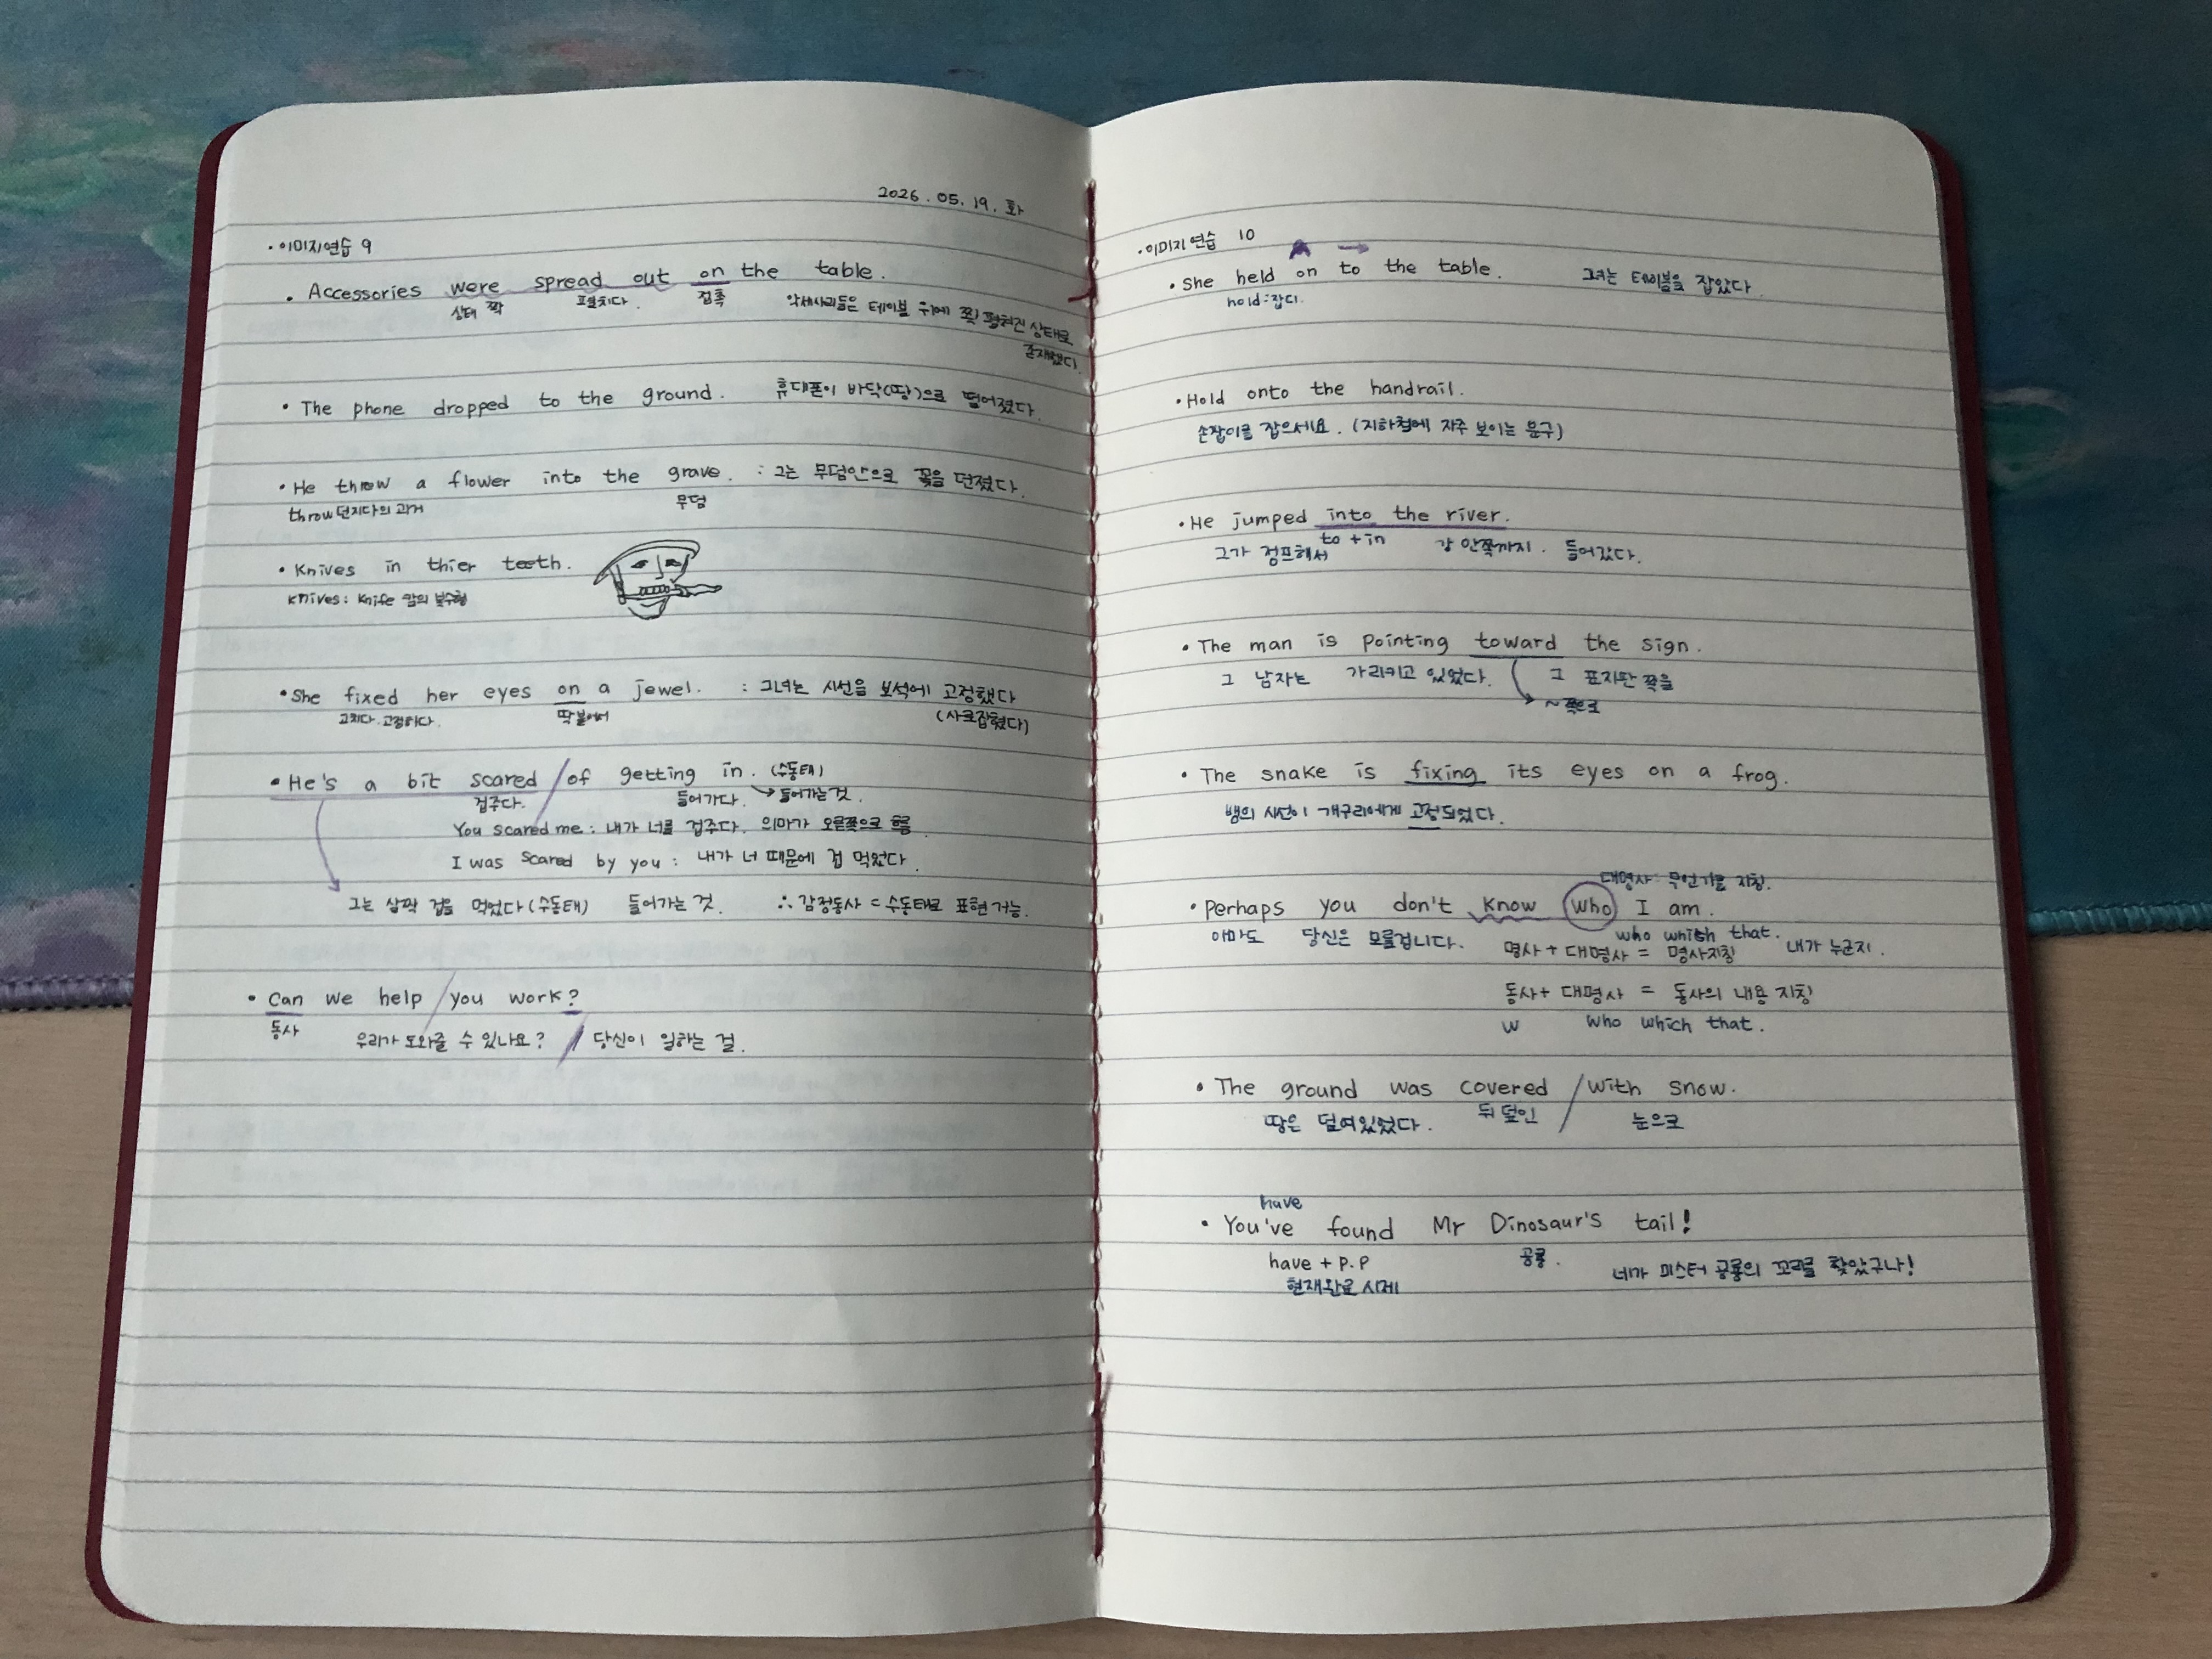 2026.05.19.화
·이미지연습 9
· Accessories were spread out on the table.
상태 짝 펼치다. 접촉 악세사리들은 테이블 위에 쫙 펼쳐진 상태로
존재했다.
· The phone dropped to the ground. 휴대폰이 바닥(땅)으로 떨어졌다.
· He threw a flower into the grave. : 그는 무덤안으로 꽃을 던졌다.
throw던지다의 과거 무덤
· Knives in thier teeth.
knives: knife 의 복수형
· She fixed her eyes on a jewel. : 그녀는 시선을 보석에 고정했다
고치다.고정하다. 딱붙어서 (사로잡혔다)
· He's a bit scared / of getting in. (수동태)
겁주다. 들어가다. → 들어가는것.
You scared me : 내가 너를 겁주다. 의미가 오른쪽으로 흐름
I was scared by you : 내가 너 때문에 겁 먹었다.
그는 살짝 겁을 먹었다(수동태) 들어가는 것. ∴ 감정동사 = 수동태로 표현가능.
· Can we help / you work?
동사 우리가 도와줄 수 있나요? / 당신이 일하는 걸.
·이미지연습 10
· She held on to the table. 그녀는 테이블을 잡았다.
hold:잡다.
· Hold onto the handrail.
손잡이를 잡으세요. (지하철에 자주 보이는 문구)
· He jumped into the river.
그가 점프해서 to + in 강 안쪽까지. 들어갔다.
· The man is pointing toward the sign.
그 남자는 가리키고 있었다. 그 표지판 쪽을
~쪽으로
· The snake is fixing its eyes on a frog.
뱀의 시선이 개구리에게 고정되었다.
대명사: 무언가를 지칭.
· Perhaps you don't know who I am.
아마도 당신은 모를겁니다. who which that.
명사 + 대명사 = 명사지칭 내가 누군지.
동사 + 대명사 = 동사의 내용 지칭
w who which that.
· The ground was covered / with snow.
땅은 덮여있었다. 뒤덮인 눈으로
have
· You've found Mr Dinosaur's tail!
have + p.p 공룡. 네가 미스터 공룡의 꼬리를 찾았구나!
현재완료 시제